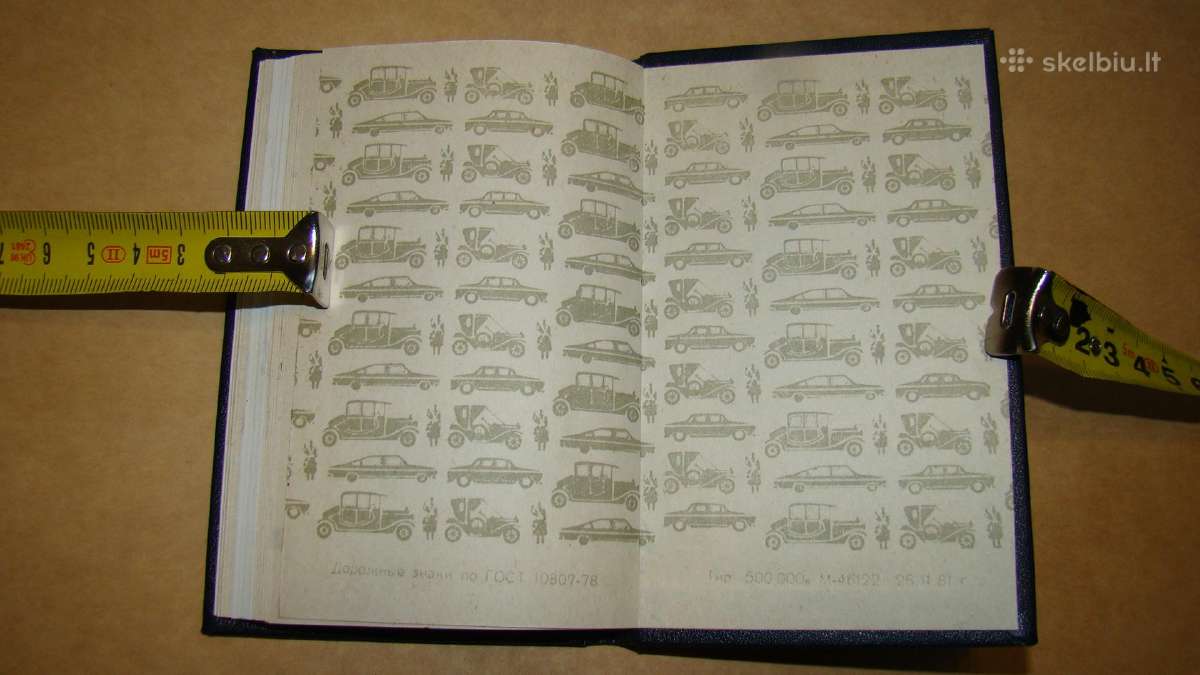 skelbiu.lt
7 6 5 4 3
5m
II
2 3 4 5
5m
Дорожные знаки по ГОСТ 10807-78
Тир. 500.000. М-46122 26.II.81 г.